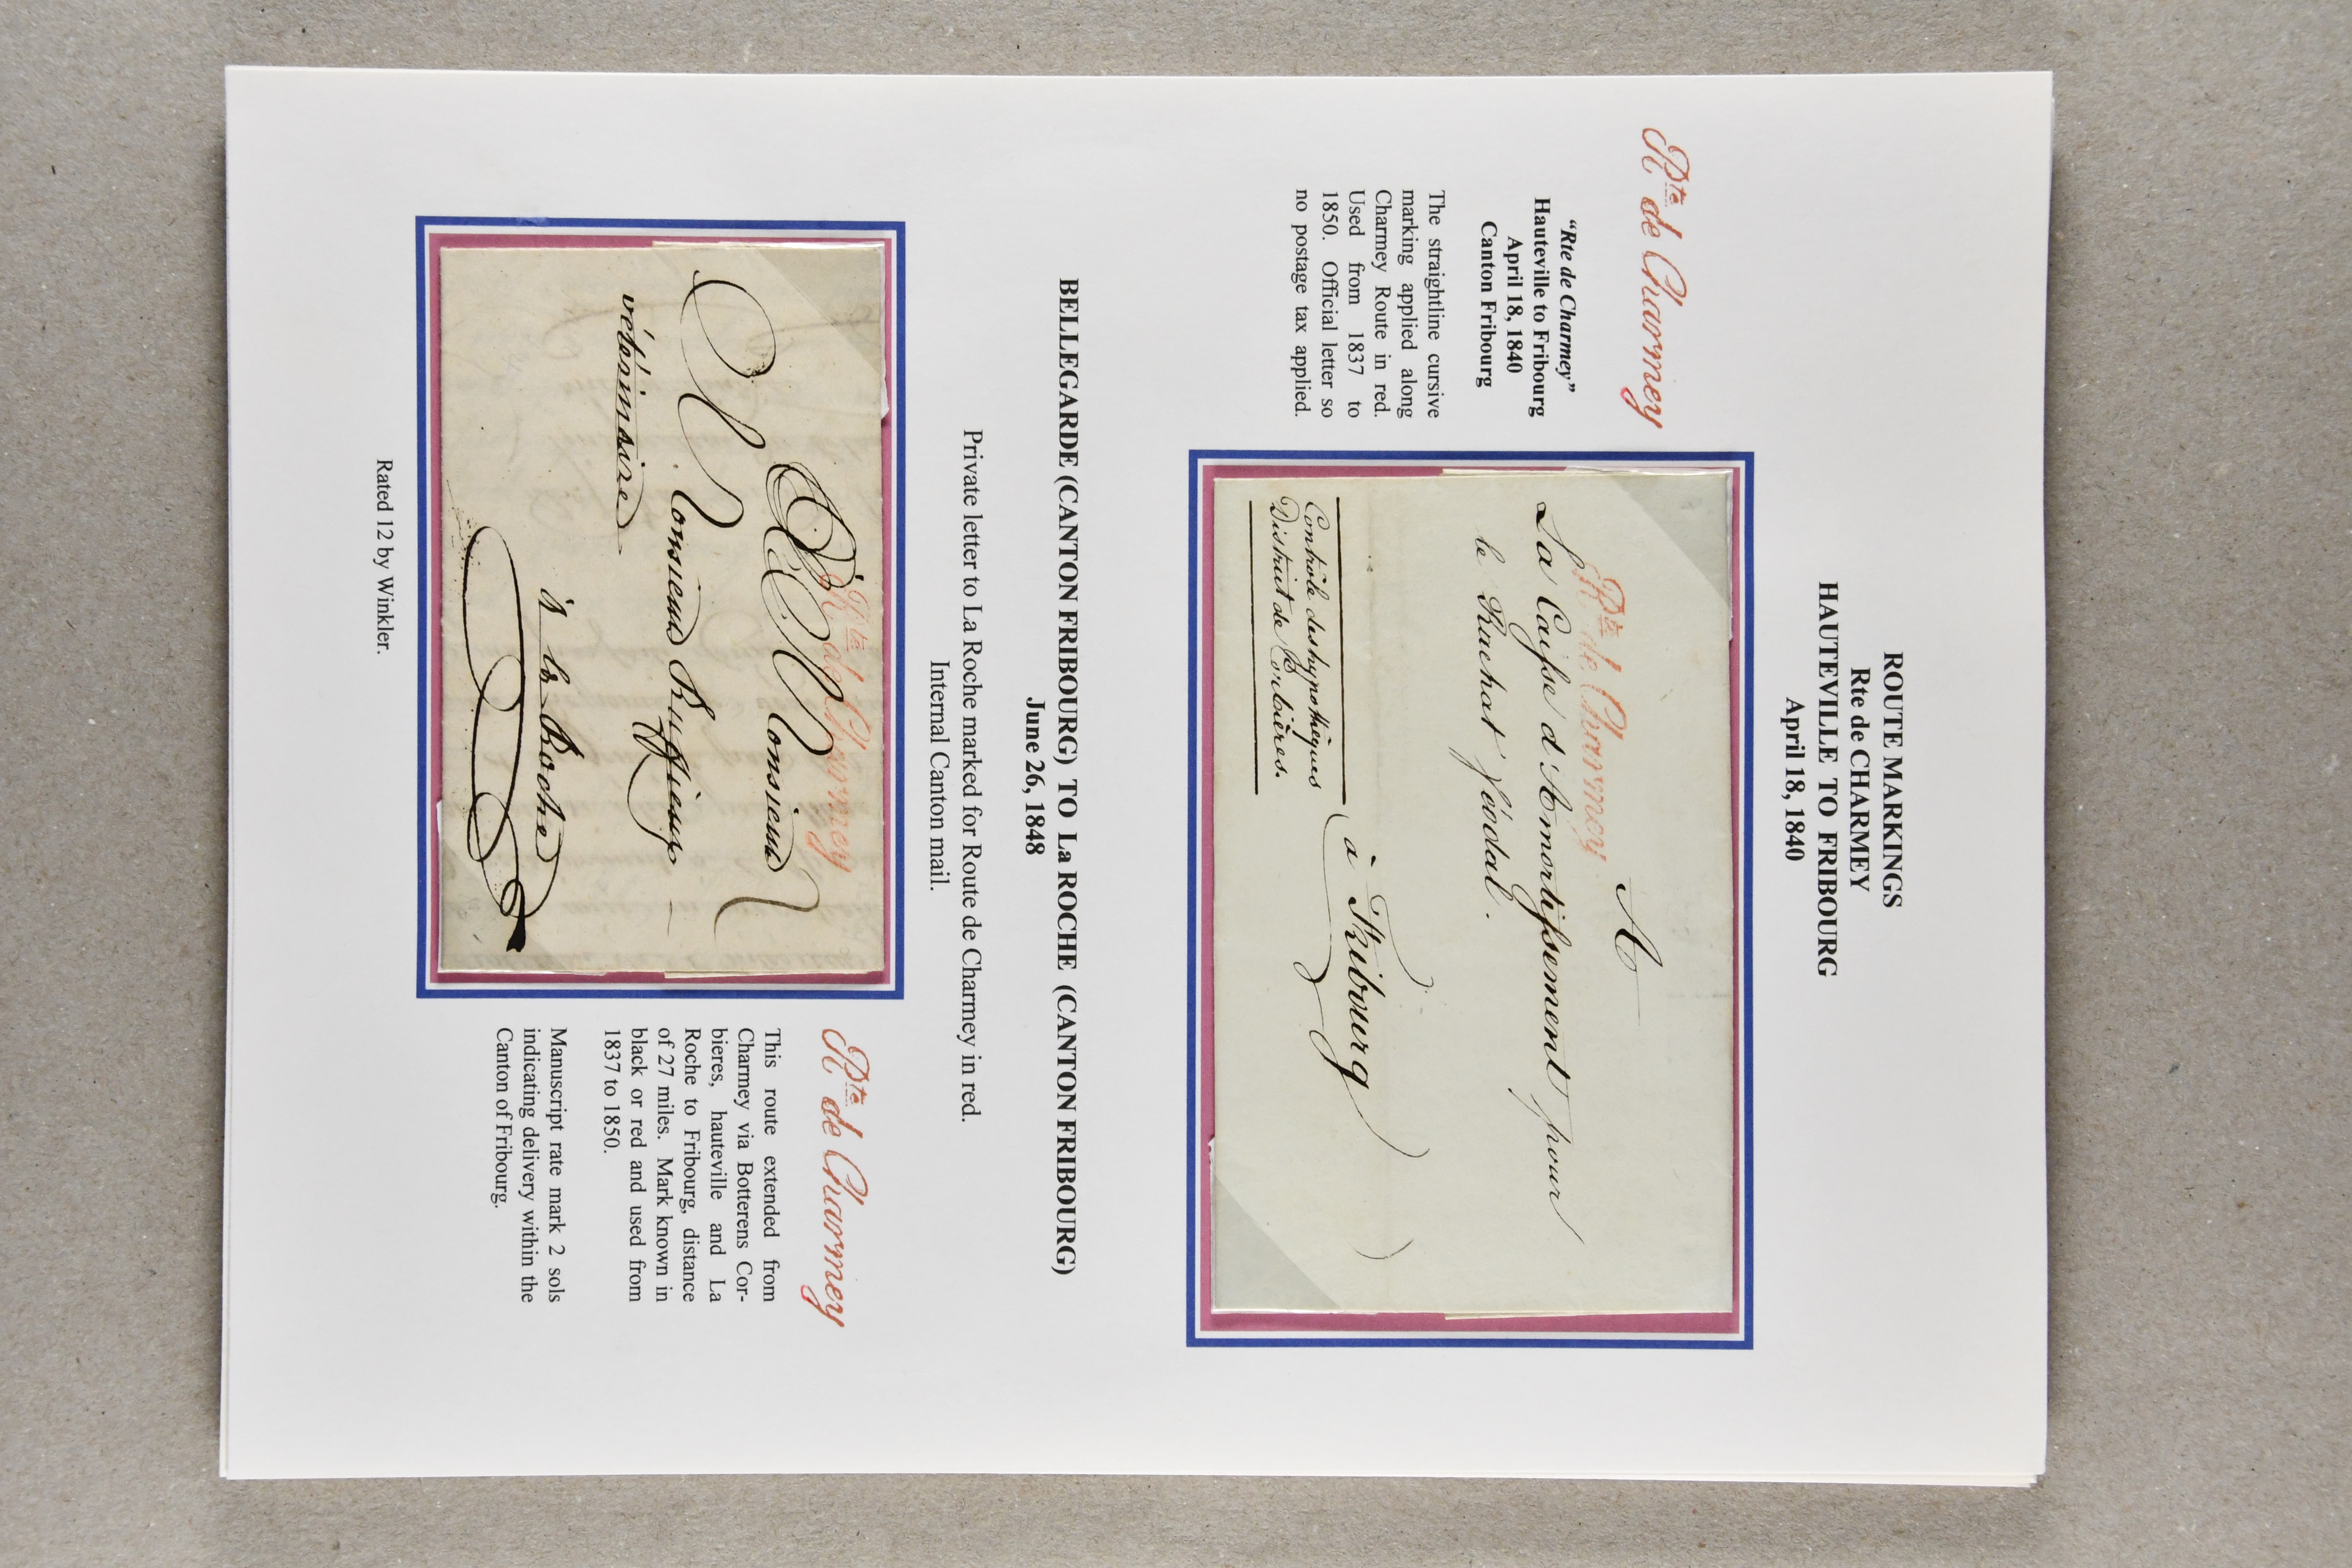 ROUTE MARKINGS
Rte de CHARMEY
HAUTEVILLE TO FRIBOURG
April 18, 1840
Rte de Charmey
"Rte de Charmey"
Hauteville to Fribourg
April 18, 1840
Canton Fribourg
The straightline cursive
marking applied along
Charmey Route in red.
Used from 1837 to
1850. Official letter so
no postage tax applied.
A
Rte de Charmey
La Caisse d'Amortissement pour
le Rachat féodal.
à Fribourg
Contrôle des hypothèques
District de Corbières.
BELLEGARDE (CANTON FRIBOURG) TO La ROCHE (CANTON FRIBOURG)
June 26, 1848
Private letter to La Roche marked for Route de Charmey in red.
Internal Canton mail.
Rte de Charmey
A Monsieur
Monsieur Ruffieux
vétérinaire
à la Roche
Rte de Charmey
This route extended from
Charmey via Botterens Cor-
bieres, hauteville and La
Roche to Fribourg, distance
of 27 miles. Mark known in
black or red and used from
1837 to 1850.
Manuscript rate mark 2 sols
indicating delivery within the
Canton of Fribourg.
Rated 12 by Winkler.